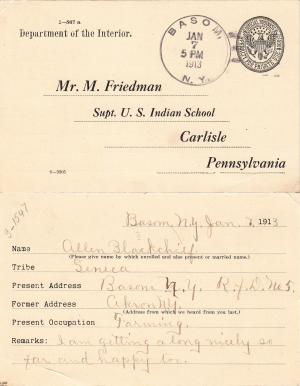 1—567 a
Department of the Interior.
BASOM,
JAN
7
5 PM
1913
N.Y.
Mr. M. Friedman
Supt. U. S. Indian School
Carlisle
Pennsylvania
Basom N.Y. Jan. 7, 1913
Name Allen Blackchief
(Please give name by which enrolled and also present or married name.)
Tribe Seneca
Present Address Basom N.Y. R.F.D. No 5.
Former Address Akron N.Y.
(Address from which we heard from you last.)
Present Occupation Farming.
Remarks: I am getting along nicely so
far and happy too.